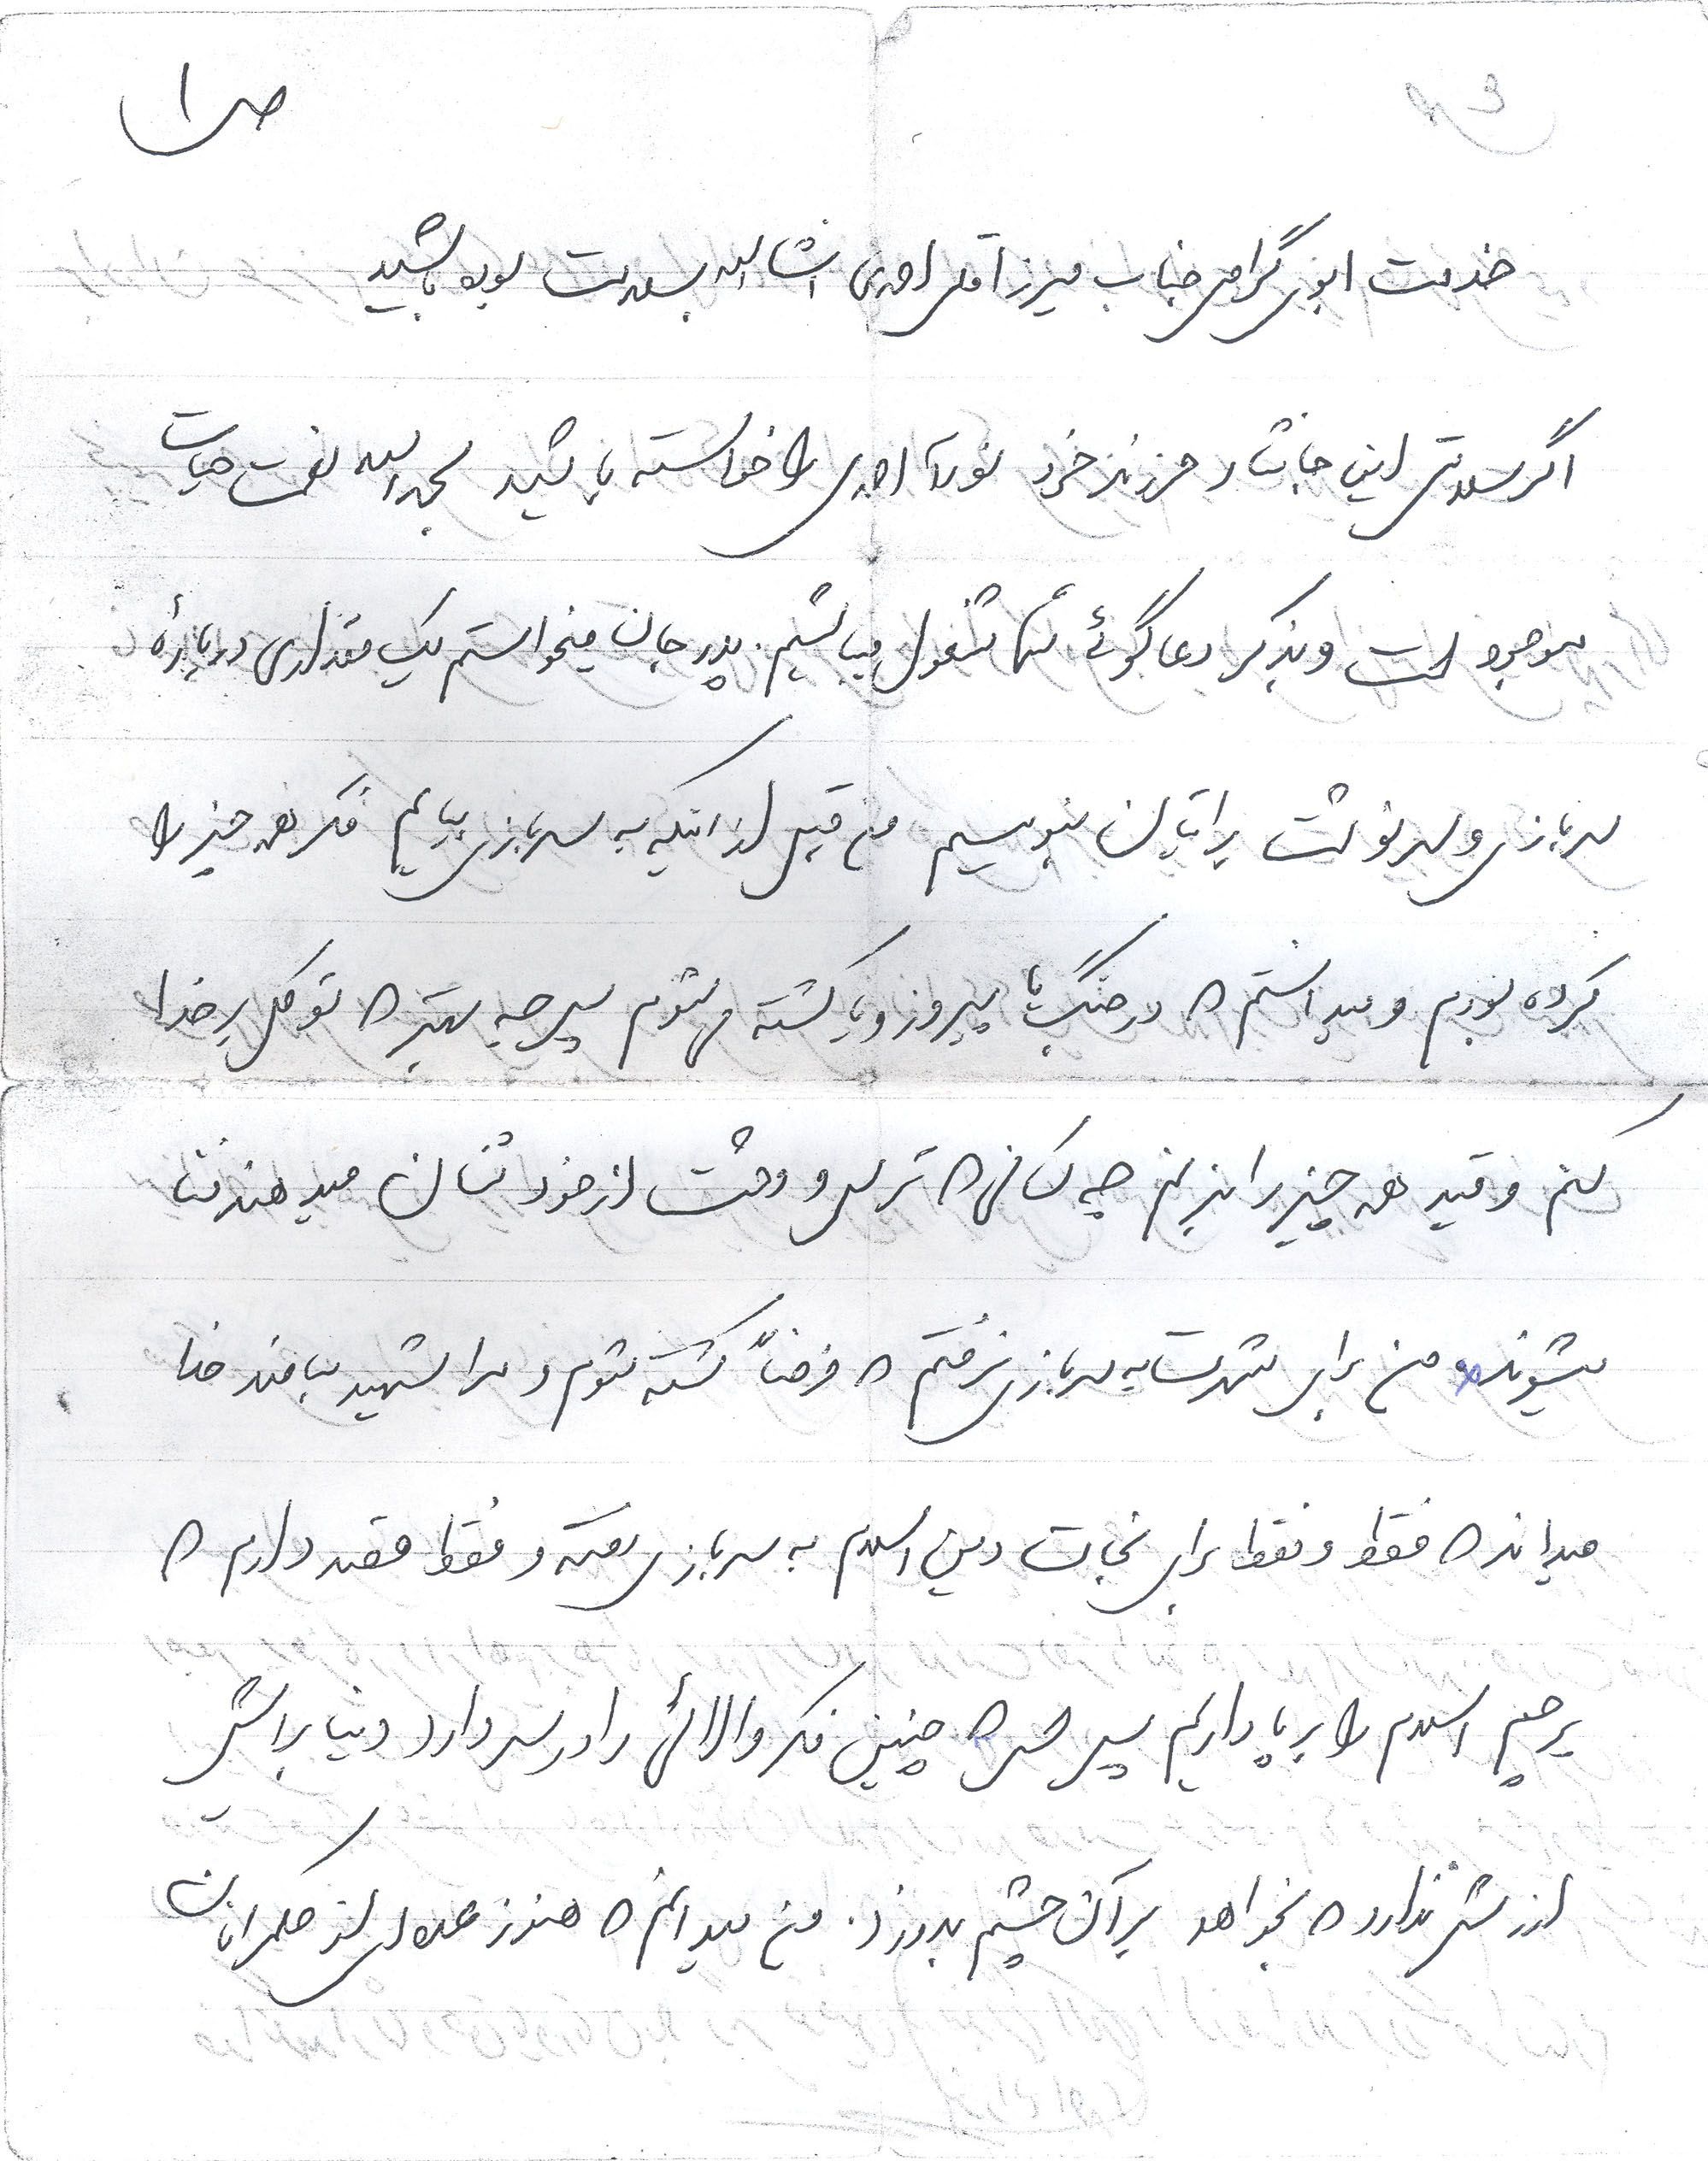 ص ۱
خدمت ابوی گرامی جناب میرزا آقای احمدی انشاالله بسلامت بوده باشید
اگر سلامتی این جانثار فرزند خود احمدی را خواسته باشید بحمدالله نعمت حیات
موجود است و بذکر دعاگوئی شما مشغول میباشیم. پدر جان میخواستم یک مقداری درباره
سربازی و سرنوشت برایتان بنویسم من قبل از اینکه به سربازی بیایم فکر همه چیز را
کرده بودم و میدانستم که در جنگ یا پیروز و یا کشته میشوم پس چه بهتر که توکل بر خدا
کنم و قید همه چیز را بزنم چه کسانی که ترس و وحشت از خود نشان میدهند فنا
میشوند من برای شهرت به سربازی نرفتم که فرضاً کشته شوم و مرا شهید بنامند خدا
میداند که فقط و فقط برای نجات دین اسلام به سربازی رفته و فقط قصد دارم که
پرچم اسلام را برپا داریم پس کسی که چنین فکر والائی را در سر دارد دنیا برایش
ارزشی ندارد که بخواهد بر آن چشم بدوزد. من میدانم که هنوز عده‌ای از